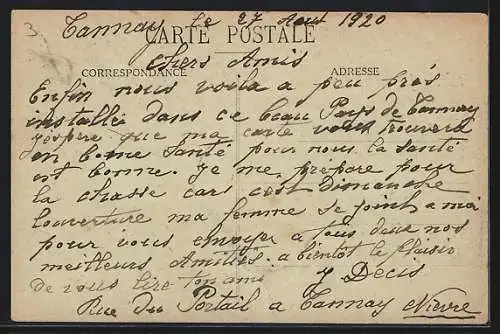 3
Tannay le 27 Aout 1920
CARTE POSTALE
Chers Amis
CORRESPONDANCE ADRESSE
Enfin nous voila a peu prés
installée dans ce beau Pays de Tannay
j'espère que ma carte vous trouvera
en bonne Santé pour nous la santé
est bonne. je me prépare pour
la chasse cars c'est Dimanche
l'ouverture ma femme se joint a moi
pour vous envoyer a tous deux nos
meilleurs Amitiés. a bientôt le plaisir
de vous lire ton ami
J Decis
Rue du Portail a Tannay Nièvre